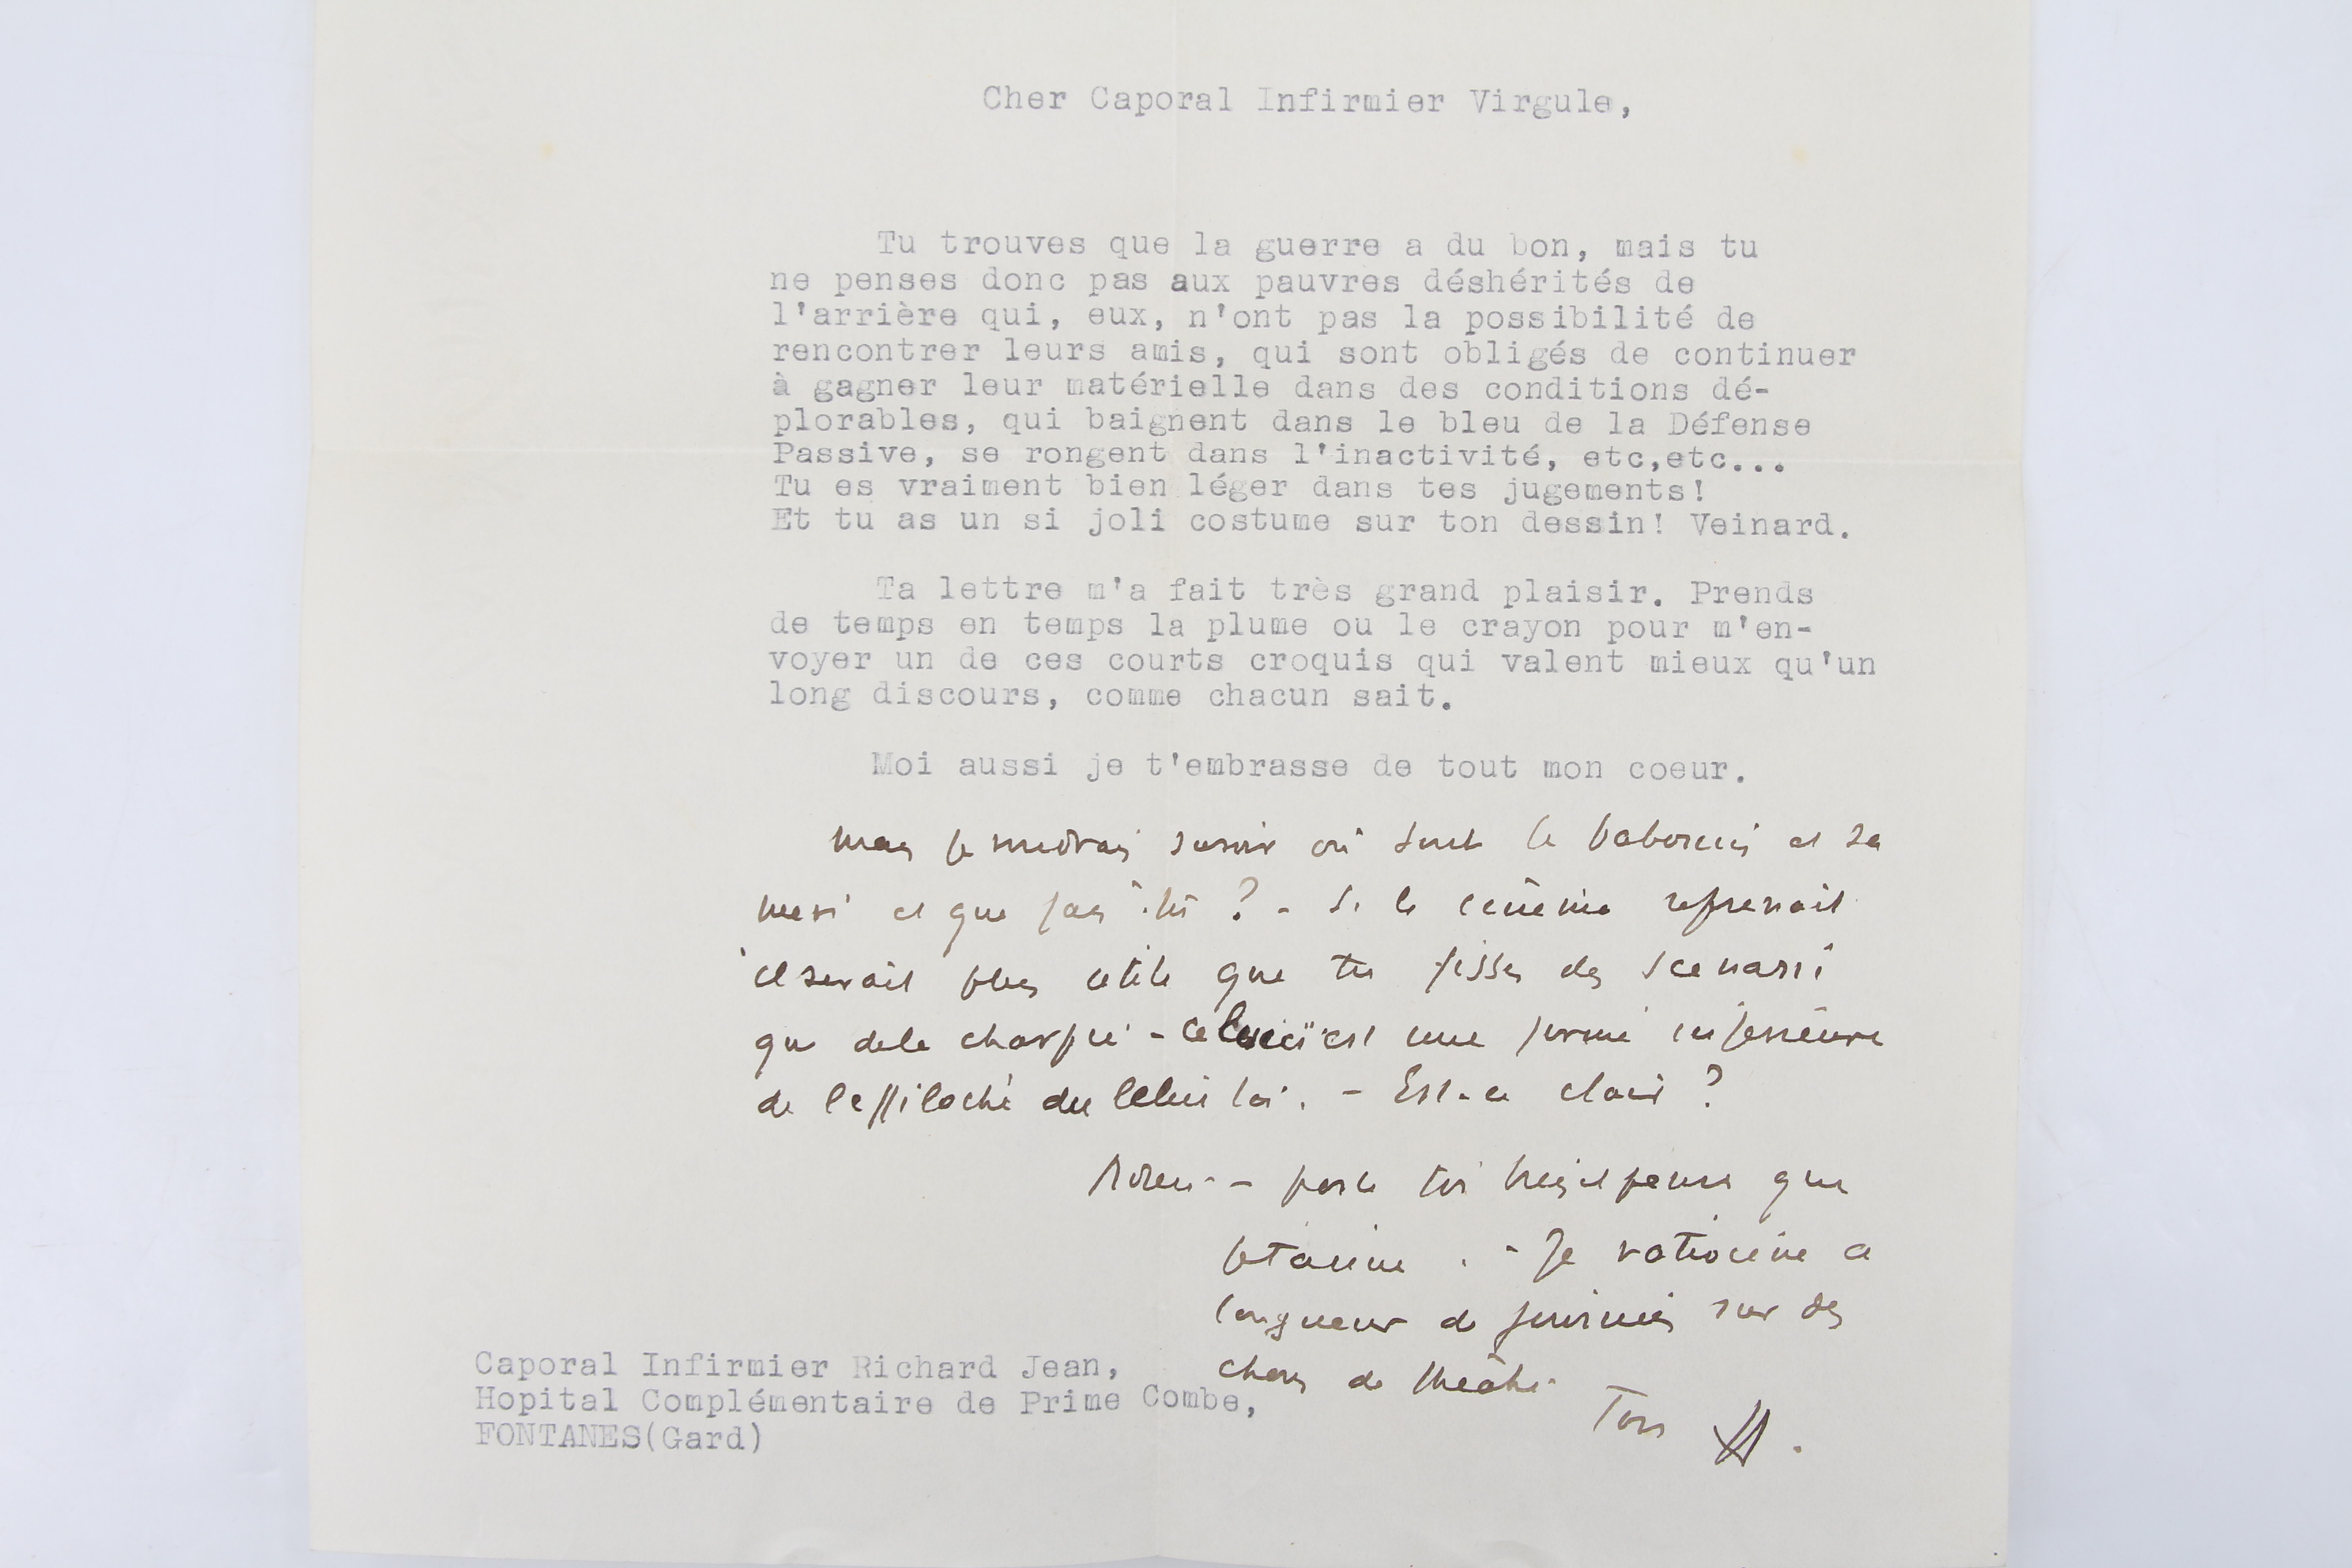 Cher Caporal Infirmier Virgule,
Tu trouves que la guerre a du bon, mais tu
ne penses donc pas aux pauvres déshérités de
l'arrière qui, eux, n'ont pas la possibilité de
rencontrer leurs amis, qui sont obligés de continuer
à gagner leur matérielle dans des conditions dé-
plorables, qui baignent dans le bleu de la Défense
Passive, se rongent dans l'inactivité, etc,etc...
Tu es vraiment bien léger dans tes jugements!
Et tu as un si joli costume sur ton dessin! Veinard.
Ta lettre m'a fait très grand plaisir. Prends
de temps en temps la plume ou le crayon pour m'en-
voyer un de ces courts croquis qui valent mieux qu'un
long discours, comme chacun sait.
Moi aussi je t'embrasse de tout mon coeur.
mais je voudrais savoir où sont le et sa
et que fais-tu ? - Si le cinéma reprenait
il serait plus utile que tu fisses des scenarii
que de la charpie - est une forme inférieure
de l'effiloché du - Est-ce clair ?
Adieu - porte toi bien et pense que
je t'aime . - Je ratiocine a
longueur de journées sur des
choses de théâtre
Ton
Caporal Infirmier Richard Jean,
Hopital Complémentaire de Prime Combe,
FONTANES(Gard)